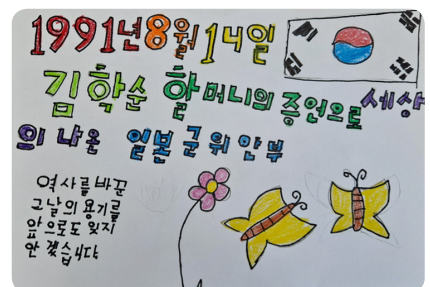 1991년 8월 14일
김학순 할머니의 증언으로 세상
의 나온 일본군 위안부
역사를 바꾼
그날의 용기를
앞으로도 잊지
안 겠습니다